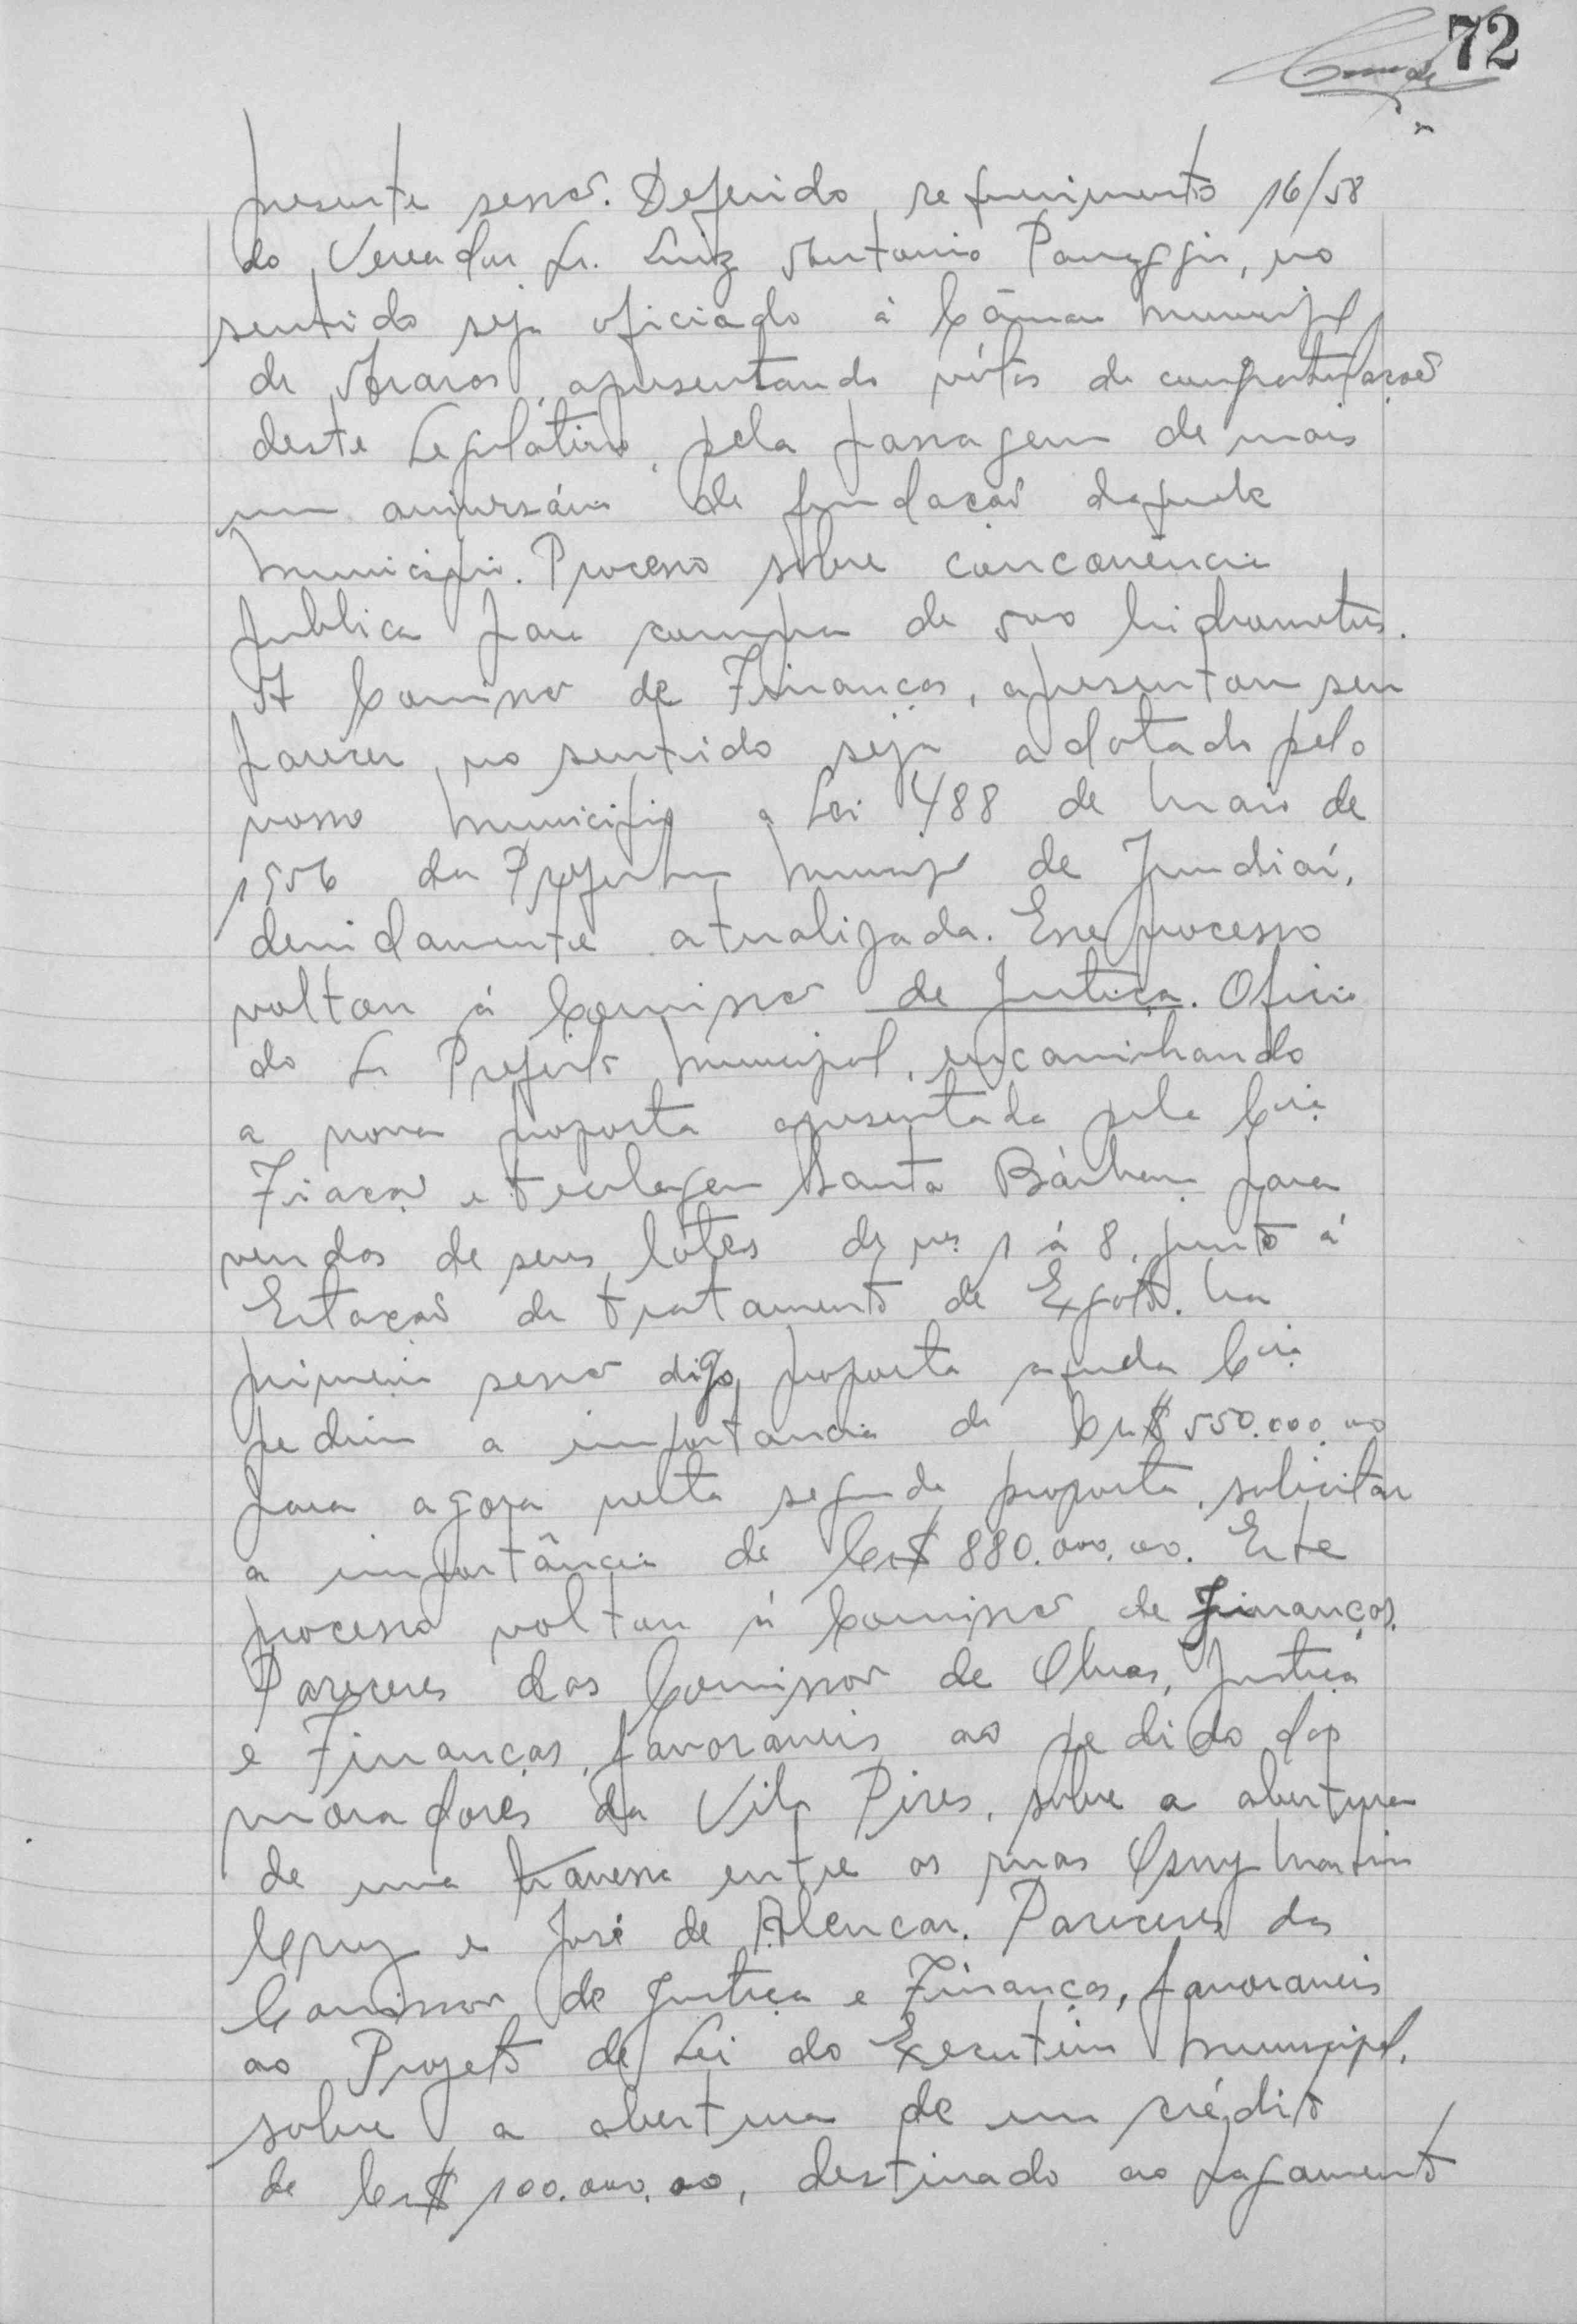 72
presente sessão. Deferido, requerimento 16/58
do Vereador Sr. Luiz Antonio Panaggio, no
sentido seja oficiado á Câmara Municipal
de Araras, apresentando vótos de congratulações
deste Legislativo, pela passagem de mais
um aniversário de fundação daquele
Municipio. Processo sôbre concorrência
publica para compra de 500 hidrometros.
A Comissão de Finanças, apresentou seu
parecer, no sentido seja adotado pelo
nosso Municipio a Lei 488 de Maio de
1956 da Prefeitura Municipal de Jundiaí,
devidamente atualizada. Esse processo
voltou á Comissão de Justiça. Oficio
do Sr Prefeito Municipal, encaminhando
a nova proposta apresentada pela Cia
Fiação e Tecelagem Santa Bárbara para
vendas de seus lótes de nºs 1 á 8, junto á
Estação de tratamento de Exgoto. Na
primeira sessão digo, proposta aquela Cia
pediu a importancia de Cr$ 550.000.00
para agora nesta segunda proposta, solicitar
a importância de Cr$ 880.000,00. Este
processo voltou á Comissão de Finanças.
Pareceres das Comissões de Obras, Justiça
e Finanças, favoraveis ao pedido dos
moradores da Vila Pires, sobre a abertura
de uma travessa entre as ruas Osny Martins
Cruz e José de Alencar. Pareceres das
Comissões de Justiça e Finanças, favoraveis
ao Projeto de Lei do Executivo Municipal,
sobre a abertura de um crédito
de Cr$ 100.000,00, destinado ao pagamento